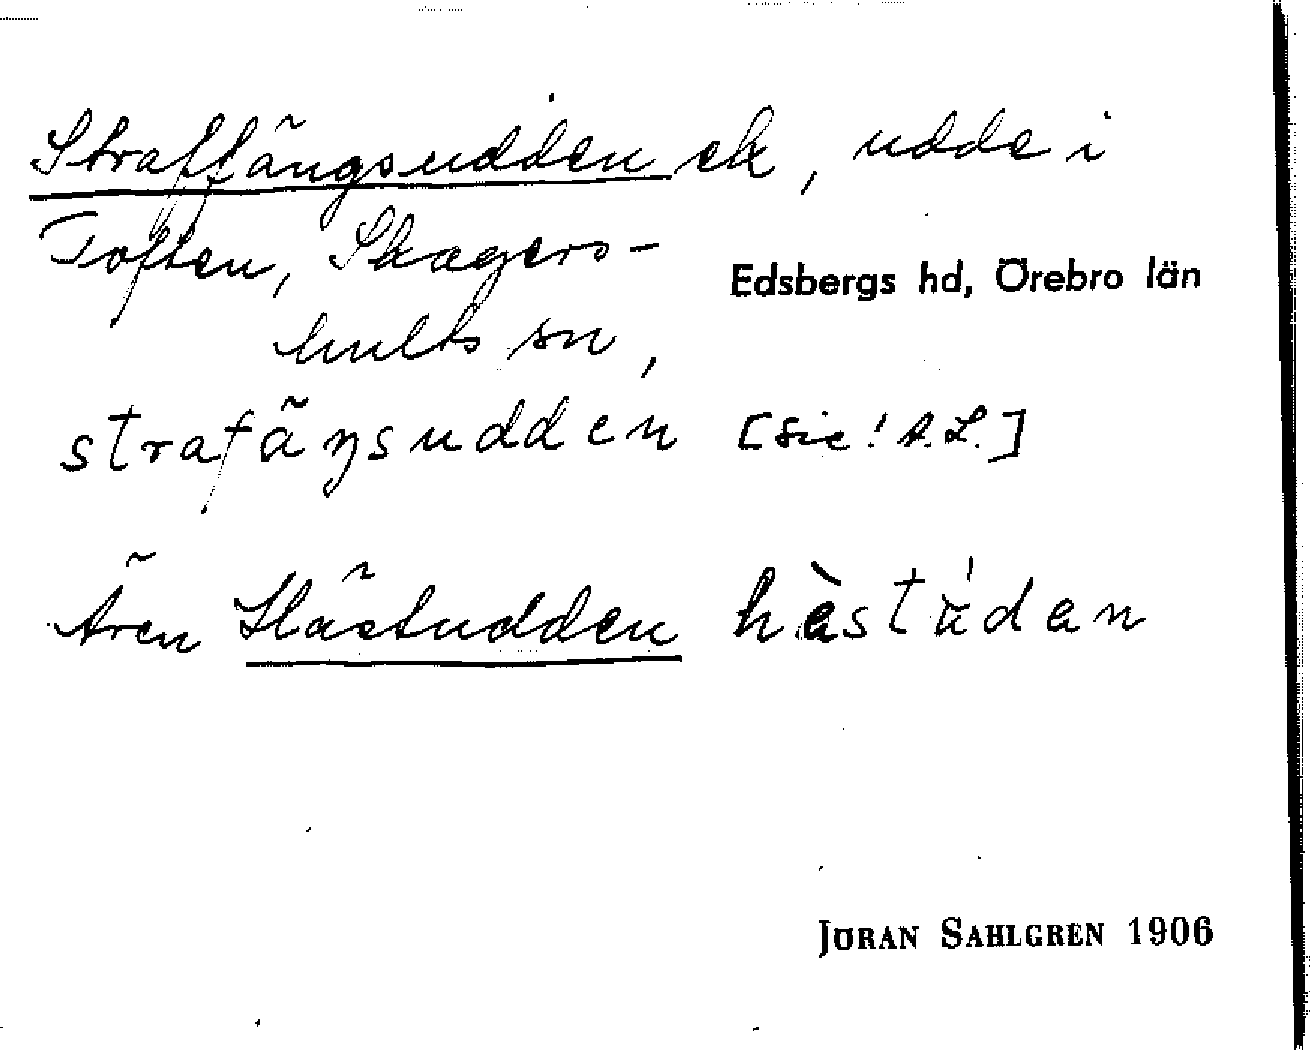 Straffängsudden ek, udde i
Toften, Skagers-
Edsbergs hd, Örebro län
hults sn,
strafäŋsudden [sic! A.L.]
Även Hästudden hàstu̇̀dən
JÖRAN SAHLGREN 1906